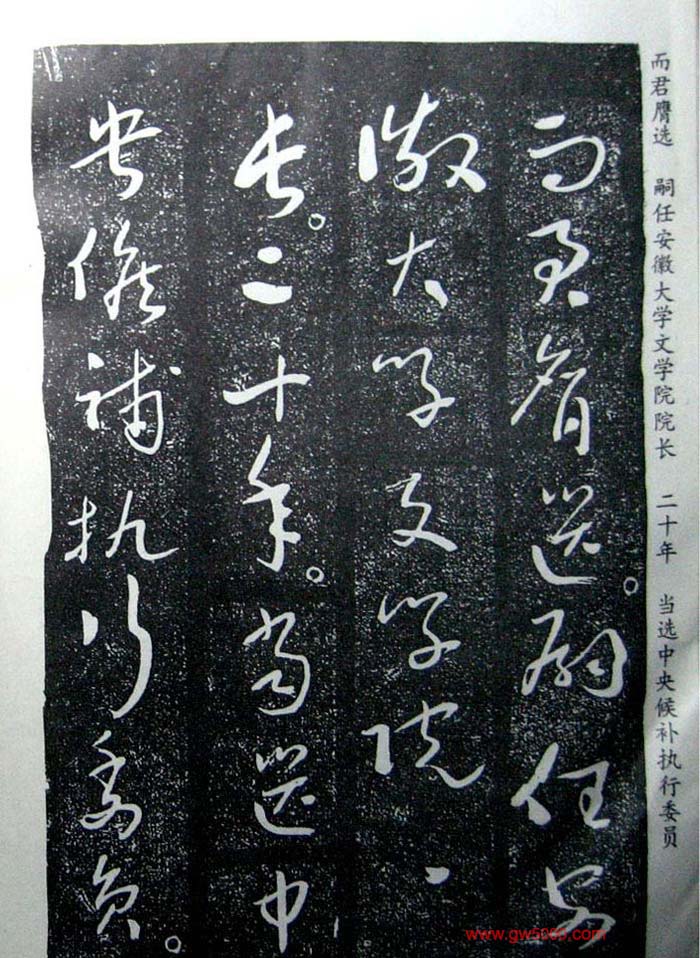 而君膺选。嗣任安
徽大学文学院〻
长。二十年。当选中
央候补执行委员。
而君膺选 嗣任安徽大学文学院院长 二十年 当选中央候补执行委员
www.gw5000.com